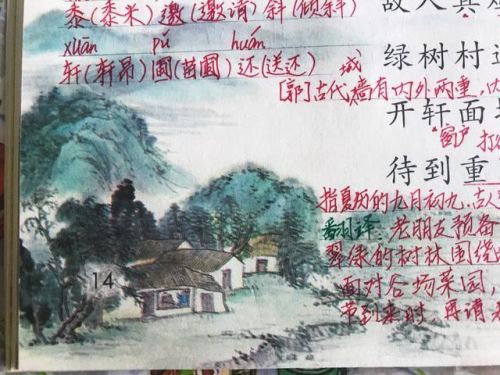 黍(黍米) 邀(邀请) 斜(倾斜)
故人具
xuān pǔ huán
轩(轩昂) 圃(苗圃) 还(送还)
绿树村
城
[郭]古代墙有内外两重,内
开轩面
窗户 打
待到重
指夏历的九月初九,古人
翻译:老朋友预备
翠绿的树林围绕
面对谷场菜园,
等到来时,再请
14